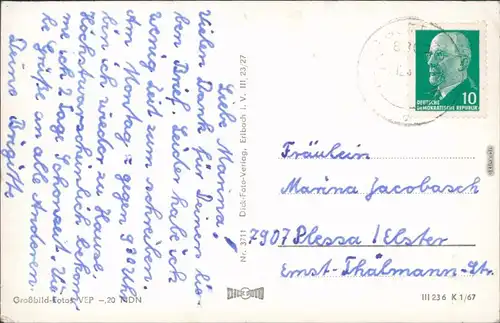 Liebe Marina!
Vielen Dank für Deinen lie-
ben Brief. Leider habe ich
wenig Zeit zum schreiben.
Am Montag gegen 9³⁰ Uhr
bin ich wieder zu Hause.
Höchstwarscheinlich bekom-
me ich 2 Tage Schonzeit. Vie-
le Grüße an alle Anderen.
Deine Brigitte
Nr. 3711 Dick-Foto-Verlag, Erlbach i. V. III 23/27
DEUTSCHE
DEMOKRATISCHE REPUBLIK
10
Fräulein
Marina Jacobasch
7907 Plessa/Elster
Ernst-Thälmann-Str.
Großbild-Fotos VEP -,20 MDN
III 23 6 K 1/67